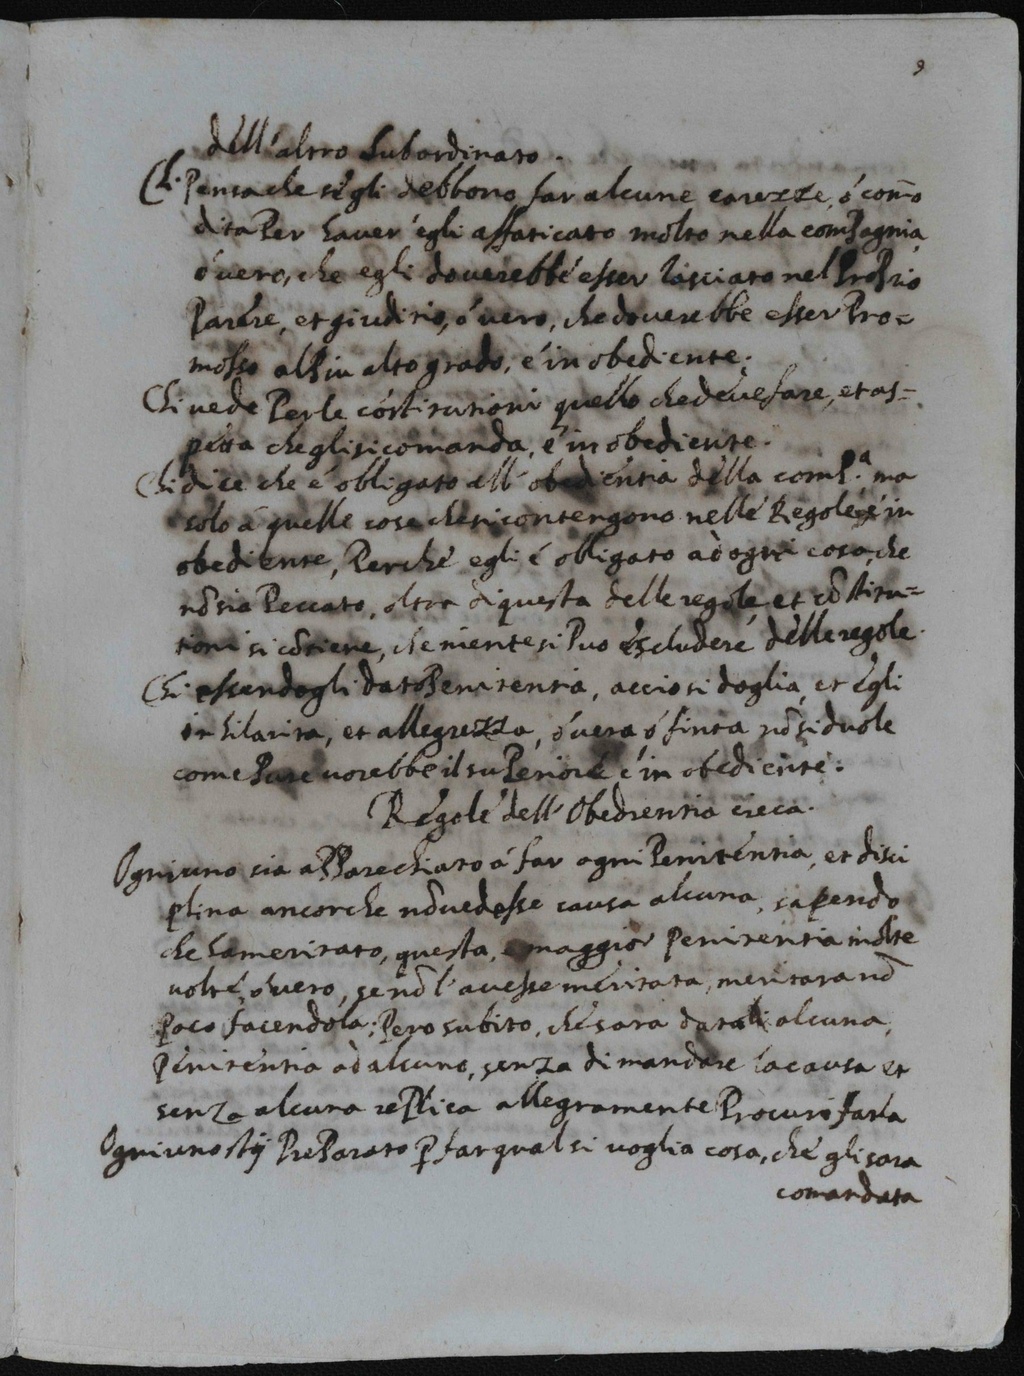 9
dell'altro subordinato.
Chi pensa che se gli debbono far alcune carezze, ó com̄o
dita per haver egli affaticato molto nella compagnia
ó vero, che egli doverebbe esser lasciato nel proprio
parere, et giuditio, ó vero, che doverebbe esser pro=
mosso al piu alto grado, é inobediente.
Chi vede per le cōstitutioni quello che deve fare, et as=
petta che gli si comanda, é inobediente.
Chi dice che é obligato all'obedientia della comp.ª ma
solo á quelle cose che si contengono nelle Regole é in
obediente, perche egli é obligato ad ogni cosa, che
nō sia peccato, oltra di questa delle regole, et cōstitu=
tioni si cōtiene, che niente si puo escludere delle regole.
Chi essendogli dato penitentia, accio si doglia, et egli
in hilarita, et allegrezza, ó vera ó finta nō si duole
come pure vorebbe il superiore é inobediente.
Regole dell'Obedientia cieca.
Ogniuno sia apparechiato á far ogni penitentia, et disci
plina ancorche nō vedesse causa alcuna, sapendo
che ha meritato, questa, e maggior penitentia molte
volte, ó vero, se nō l'avesse meritata, meritara nō
poco facendola; pero subito, che sara datali alcuna,
penitentia ad alcuno, senza dimandare la causa et
senza alcuna replica allegramente procuri farla
Ogniuno stij preparato ꝑ far qual si voglia cosa, che gli sara
comandata